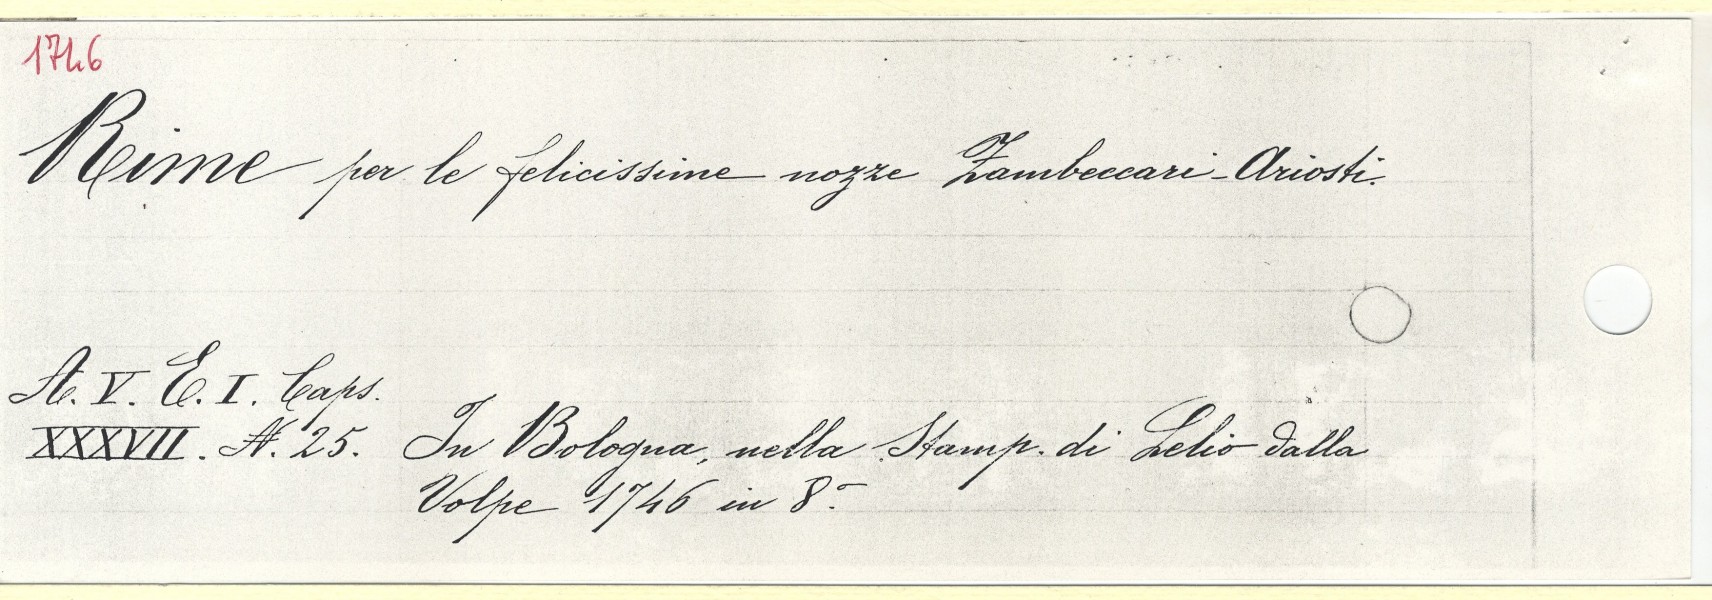 1746
Rime per le felicissime nozze Zambeccari-Ariosti.
A. V. E. I. Caps.
XXXVII. N. 25.
In Bologna, nella Stamp. di Lelio dalla
Volpe 1746 in 8.º